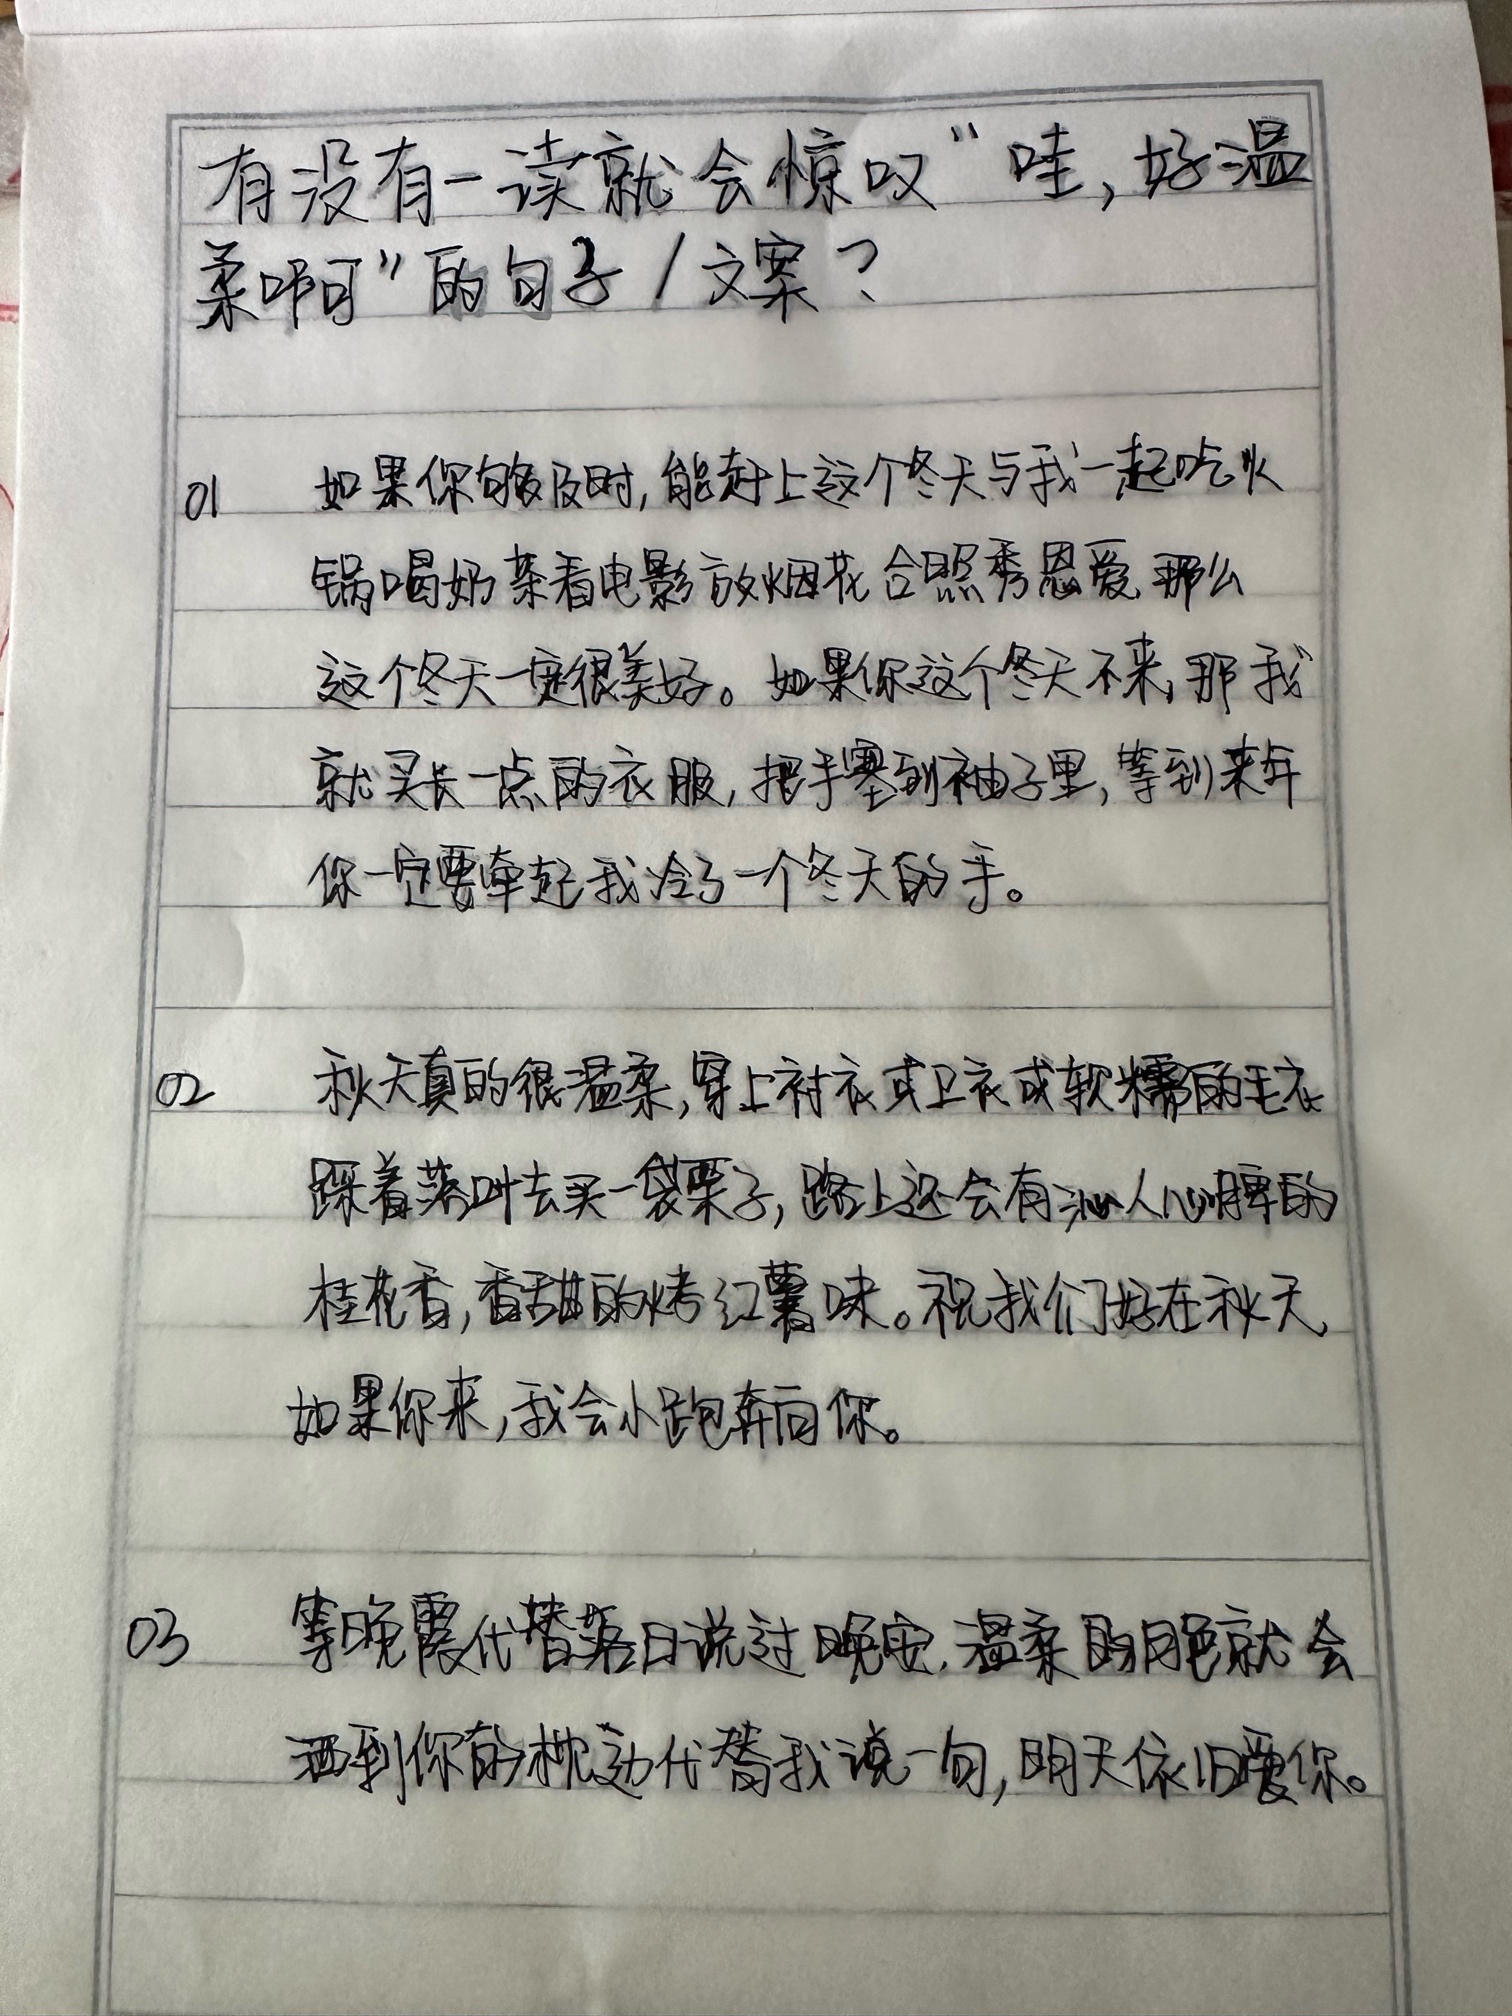 有没有一读就会惊叹“哇,好温
柔啊”的句子/文案?
01 如果你够及时,能赶上这个冬天与我一起吃火
锅喝奶茶看电影放烟花合照秀恩爱,那么
这个冬天一定很美好。如果你这个冬天不来,那我
就买长一点的衣服,把手塞到袖子里,等到来年
你一定要牵起我冷了一个冬天的手。
02 秋天真的很温柔,穿上衬衣或卫衣或软糯的毛衣
踩着落叶去买一袋栗子,路上还会有沁人心脾的
桂花香,香甜的烤红薯味。祝我们好在秋天,
如果你来,我会小跑奔向你。
03 等晚霞代替落日说过晚安,温柔的月色就会
洒到你的枕边代替我说一句,明天依旧爱你。